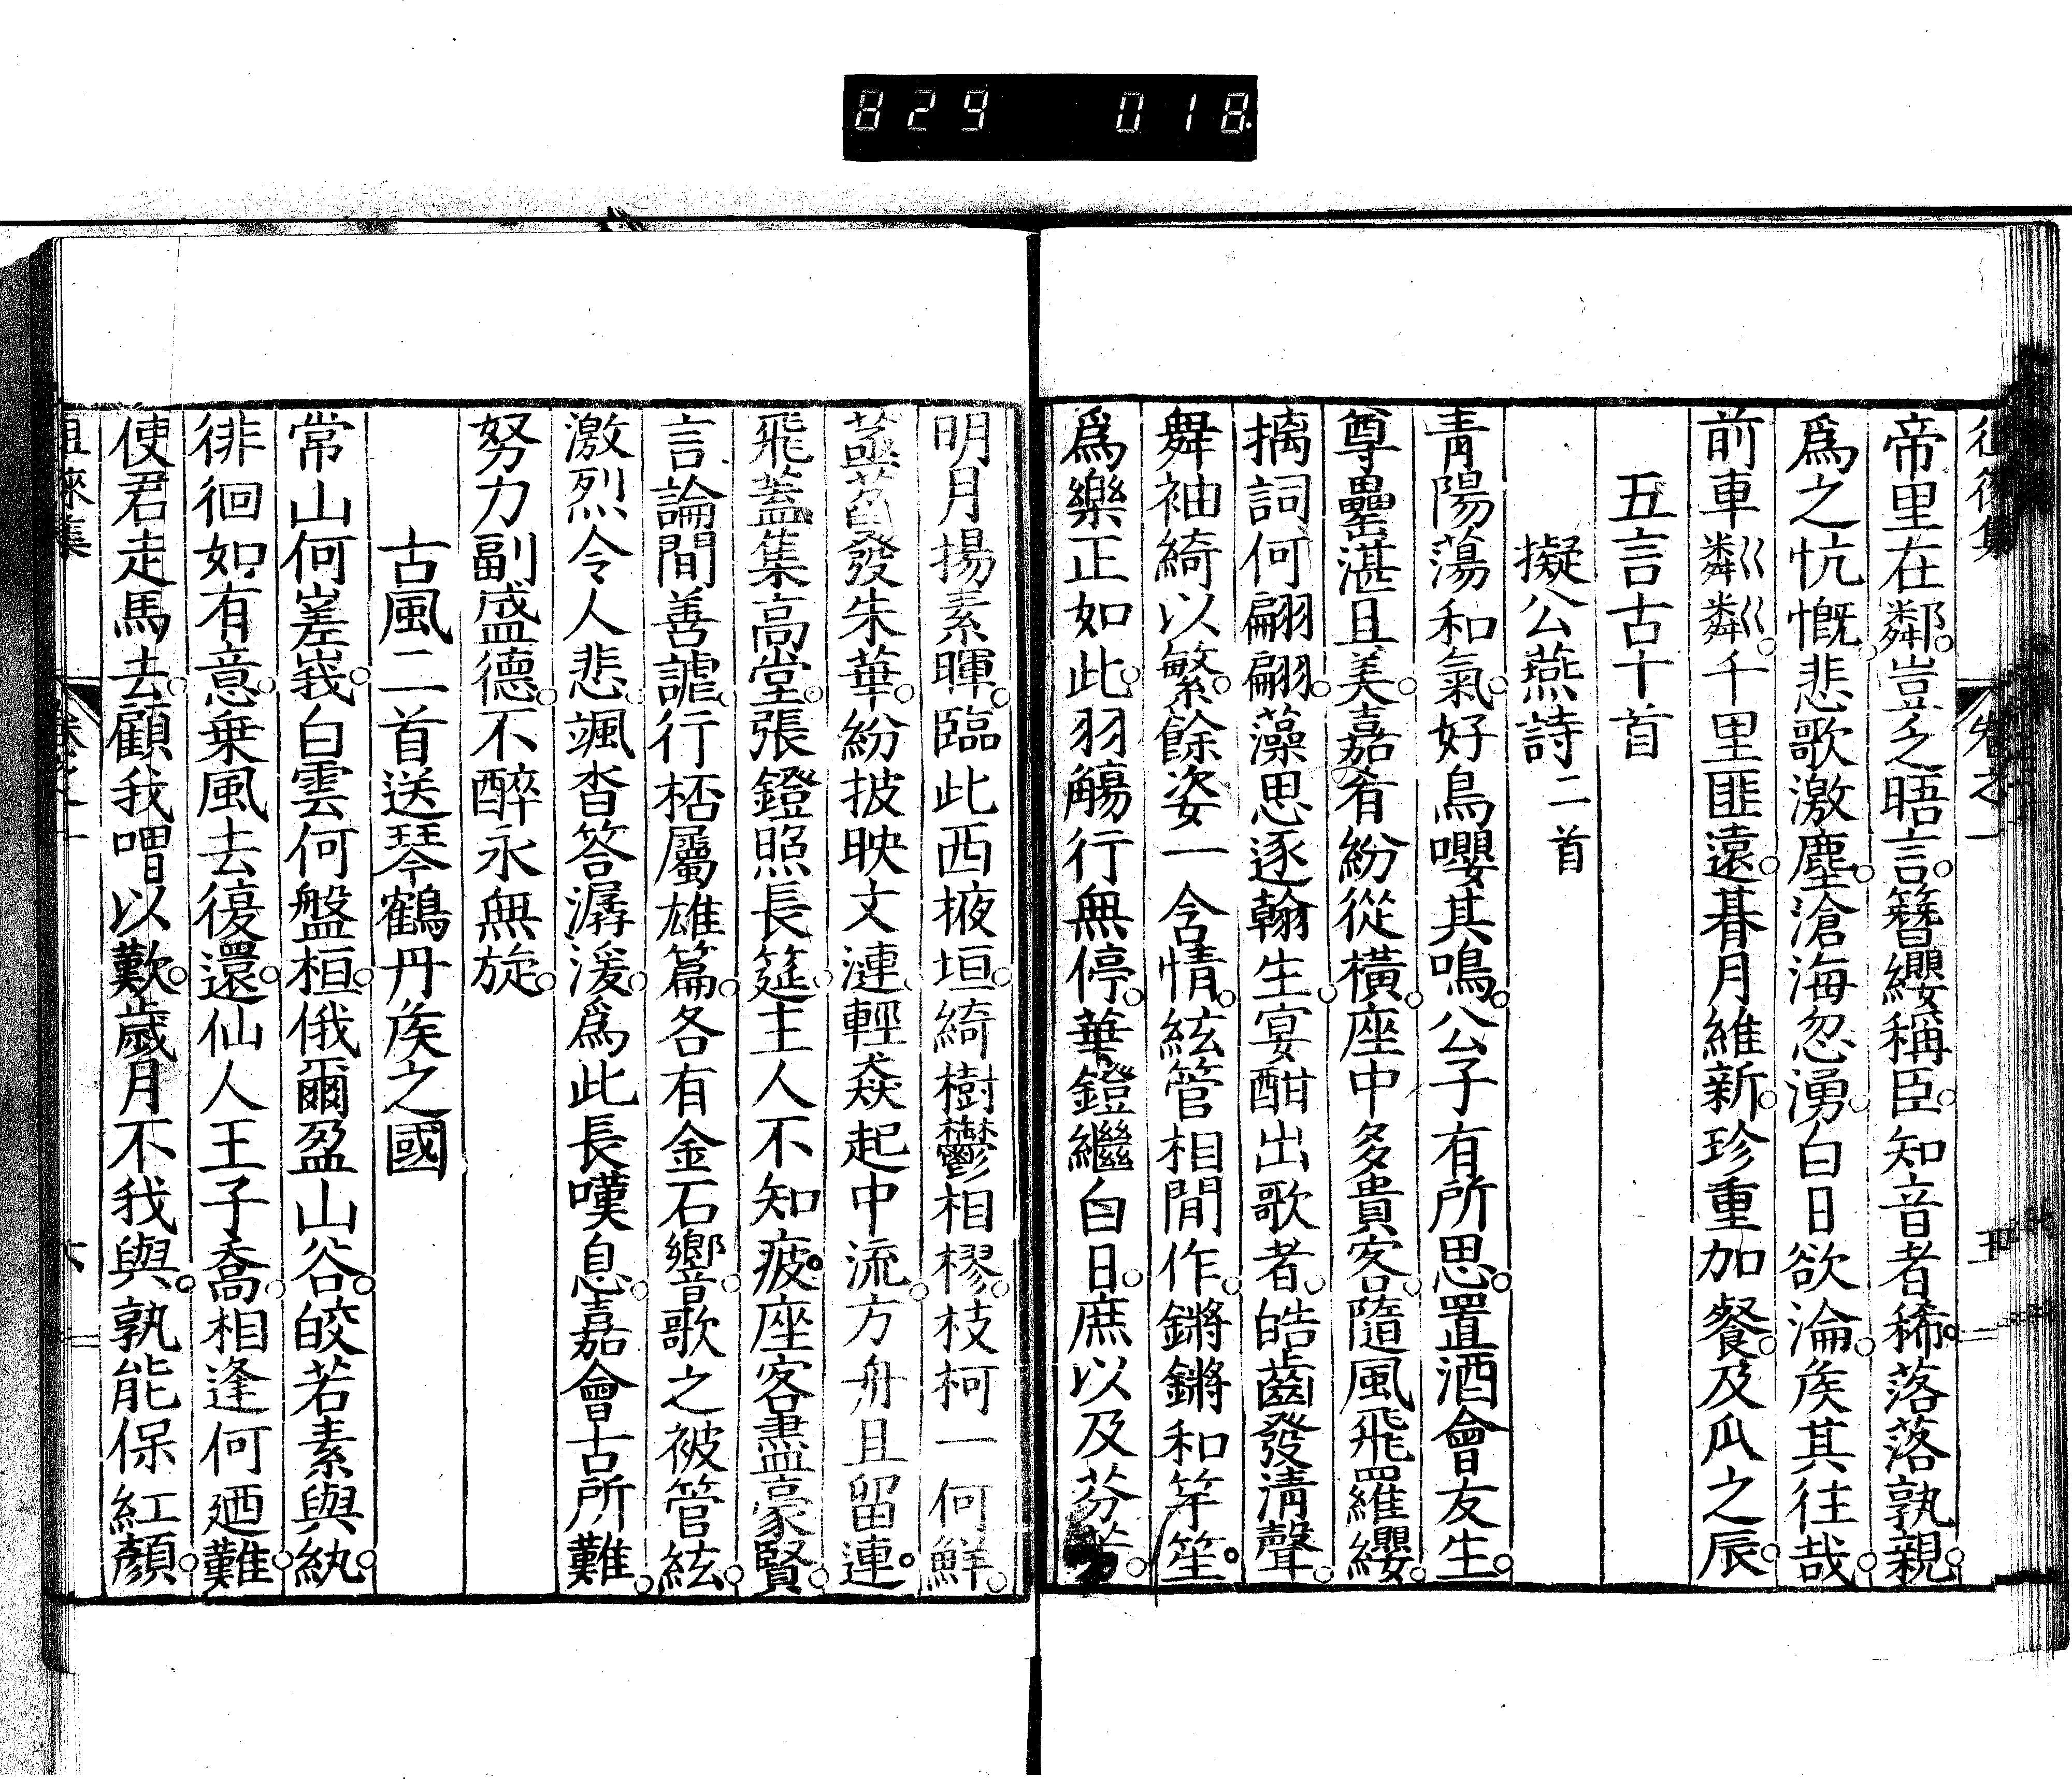 829 018
帝里在鄰。豈乏晤言。簪纓稱臣。知音者稀。落落孰親。
爲之忼慨。悲歌激塵。滄海忽湧。白日欲淪。矦其往哉。
前車粼粼。千里匪遠。朞月維新。珍重加餐。及瓜之辰。
五言古十首
擬公燕詩二首
青陽蕩和氣。好鳥嚶其鳴。公子有所思。置酒會友生。
尊罍湛且美。嘉肴紛從橫。座中多貴客。隨風飛羅纓。
摛詞何翩翩。藻思逐翰生。宴酣出歌者。皓齒發淸聲。
舞袖綺以繁。餘姿一含情。絃管相間作。鏘鏘和竽笙。
爲樂正如此。羽觴行無停。華鐙繼白日。庶以及芬
五
明月揚素暉。臨此西掖垣。綺樹鬱相樛。枝柯一何鮮。
菡萏發朱華。紛披映文漣。輕猋起中流。方舟且留連。
飛蓋集高堂。張鐙照長筵。主人不知疲。座客盡豪賢。
言論間善謔。行桮屬雄篇。各有金石響。歌之被管絃。
激烈令人悲。颯沓答潺湲。爲此長嘆息。嘉會古所難。
努力副盛德。不醉永無旋。
古風二首送琴鶴丹矦之國
常山何嵳峩。白雲何盤桓。俄爾盈山谷。皎若素與紈。
徘徊如有意。乗風去復還。仙人王子喬。相逢何廼難。
使君走馬去。顧我喟以歎。歲月不我與。孰能保紅顏。
徂徠集 卷之一 六